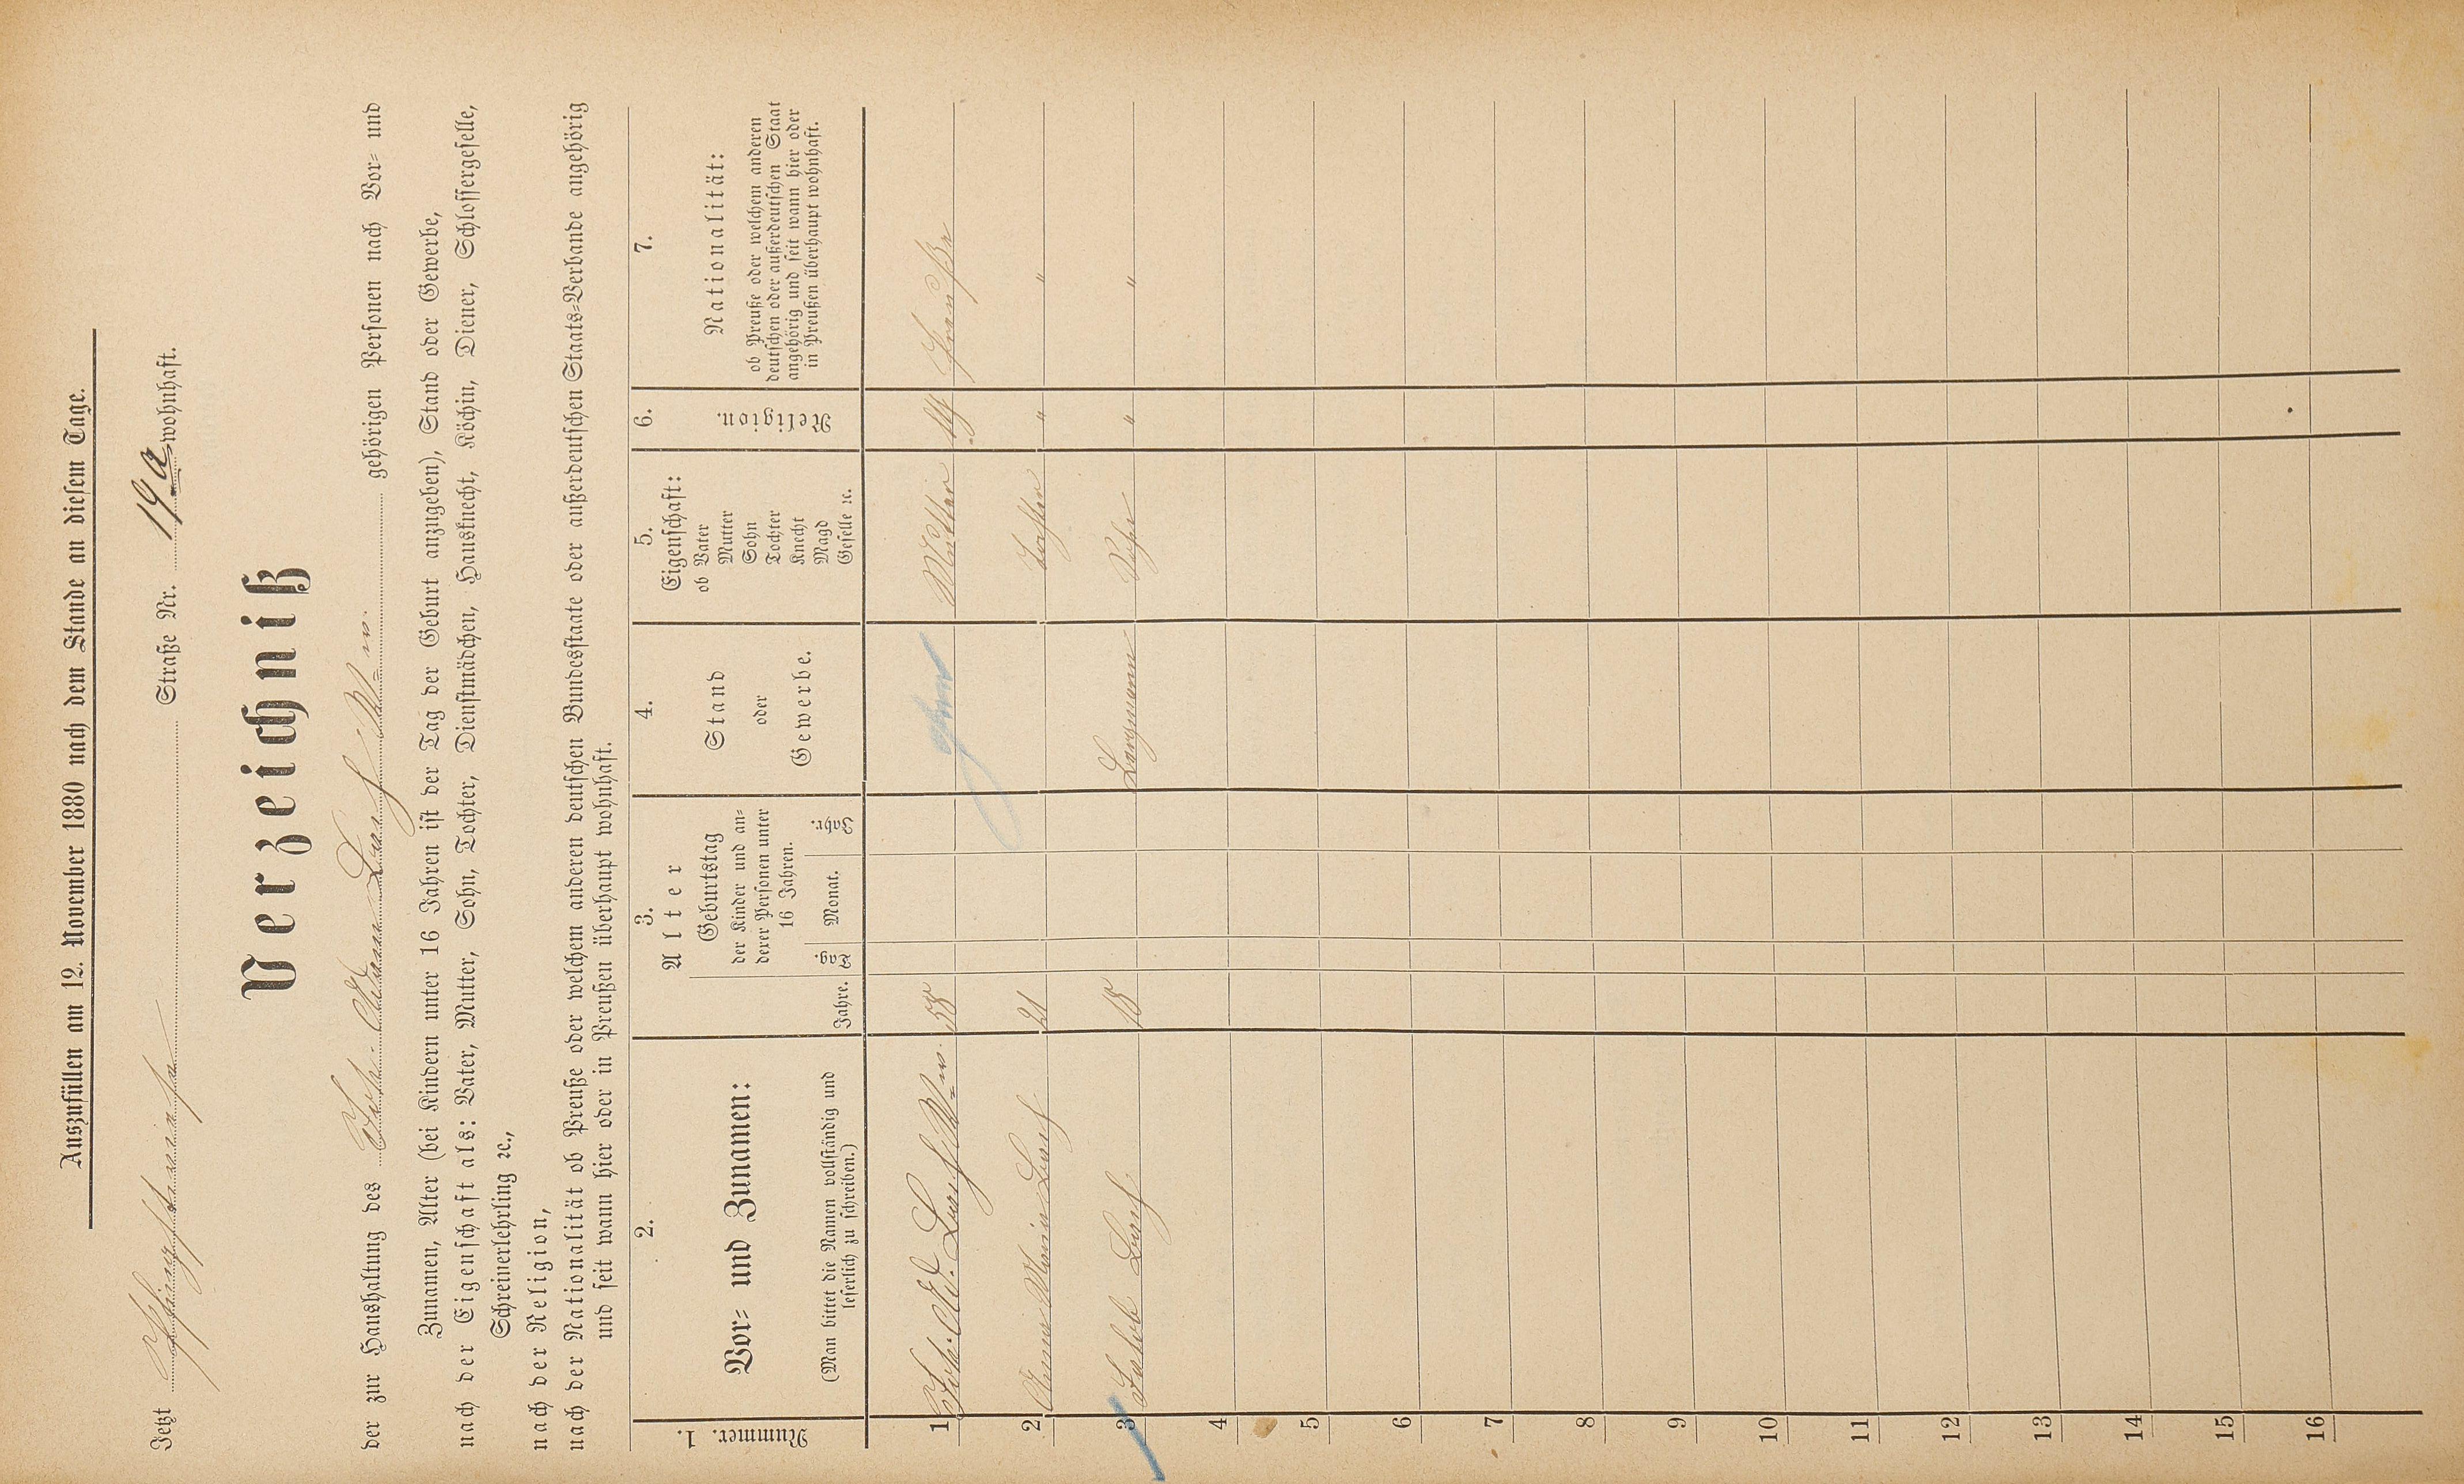 Auszufüllen am 12. November 1880 nach dem Stande an diesem Tage.
Jetzt Pfingstweide Straße Nr. 19 a wohnhaft.
Verzeichniß
der zur Haushaltung des Joh. Adam Lurch Ww. gehörigen Personen nach Vor- und
Zunamen, Alter (bei Kindern unter 16 Jahren ist der Tag der Geburt anzugeben), Stand oder Gewerbe,
nach der Eigenschaft als: Vater, Mutter, Sohn, Tochter, Dienstmädchen, Hausknecht, Köchin, Diener, Schlossergeselle,
Schreinerlehrling ꝛc.,
nach der Religion,
nach der Nationalität ob Preuße oder welchem anderen deutschen Bundesstaate oder außerdeutschen Staats-Verbande angehörig
und seit wann hier oder in Preußen überhaupt wohnhaft.
Nummer. 1.
2.
Vor- und Zunamen:
(Man bittet die Namen vollständig und
leserlich zu schreiben.)
3.
Alter
Jahre.
Geburtstag
der Kinder und an-
derer Personen unter
16 Jahren.
Tag. Monat. Jahr.
4.
Stand
oder
Gewerbe.
5.
Eigenschaft:
ob Vater
Mutter
Sohn
Tochter
Knecht
Magd
Geselle ꝛc.
6.
Religion.
7.
Nationalität:
ob Preuße oder welchem anderen
deutschen oder außerdeutschen Staat
angehörig und seit wann hier oder
in Preußen überhaupt wohnhaft.
1 Joh. Ad. Lurch Ww. 58 ohne Mutter Preuße
2 Anna Maria Lurch 21 Tochter " "
3 Jakob Lurch 18 Sohn " "
4
5
6
7
8
9
10
11
12
13
14
15
16